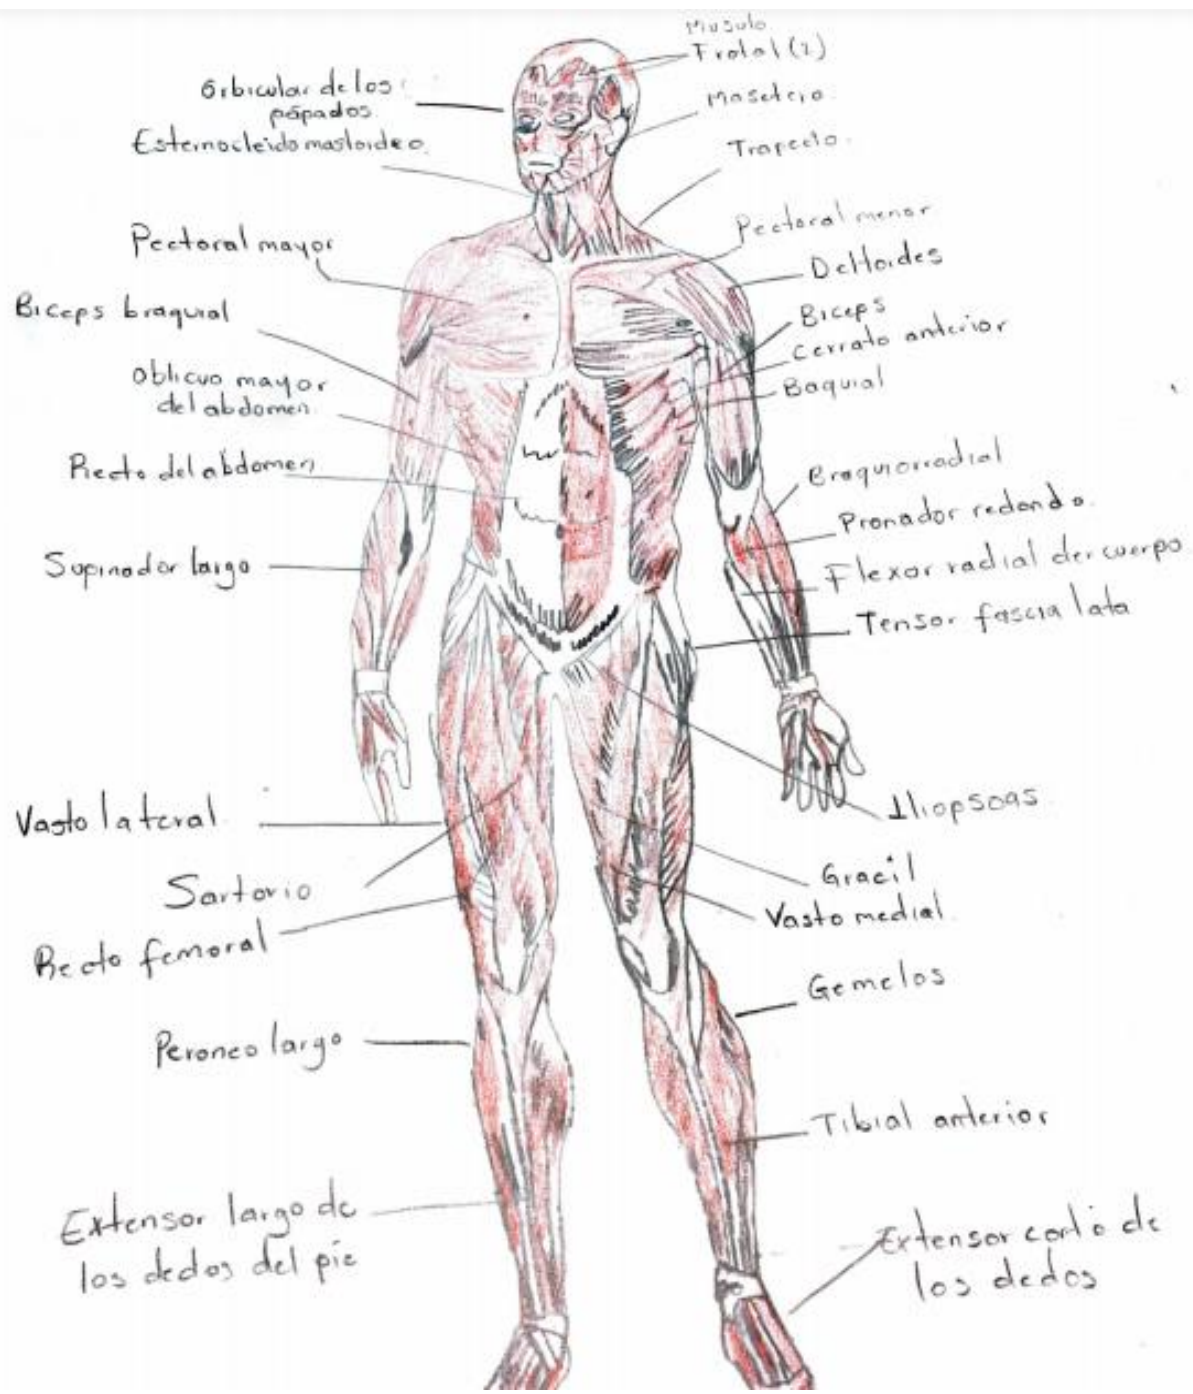 Musulo
Frotal (2)
Orbicular de los
pápados.
Masetero.
Esternocleidomastoideo.
Trapecio.
Pectoral mayor
Pectoral menor
Deltoides
Biceps braquial
Biceps
Cerrato anterior
Oblicuo mayor
del abdomen.
Baquial
Recto del abdomen
Braquiorradial
Pronador redondo.
Supinador largo
Flexor radial der cuerpo
Tensor fascia lata
Iliopsoas
Vasto lateral
Gracil
Sartorio
Vasto medial
Recto femoral
Gemelos
Peroneo largo
Tibial anterior
Extensor largo de
los dedos del pie
Extensor corto de
los dedos